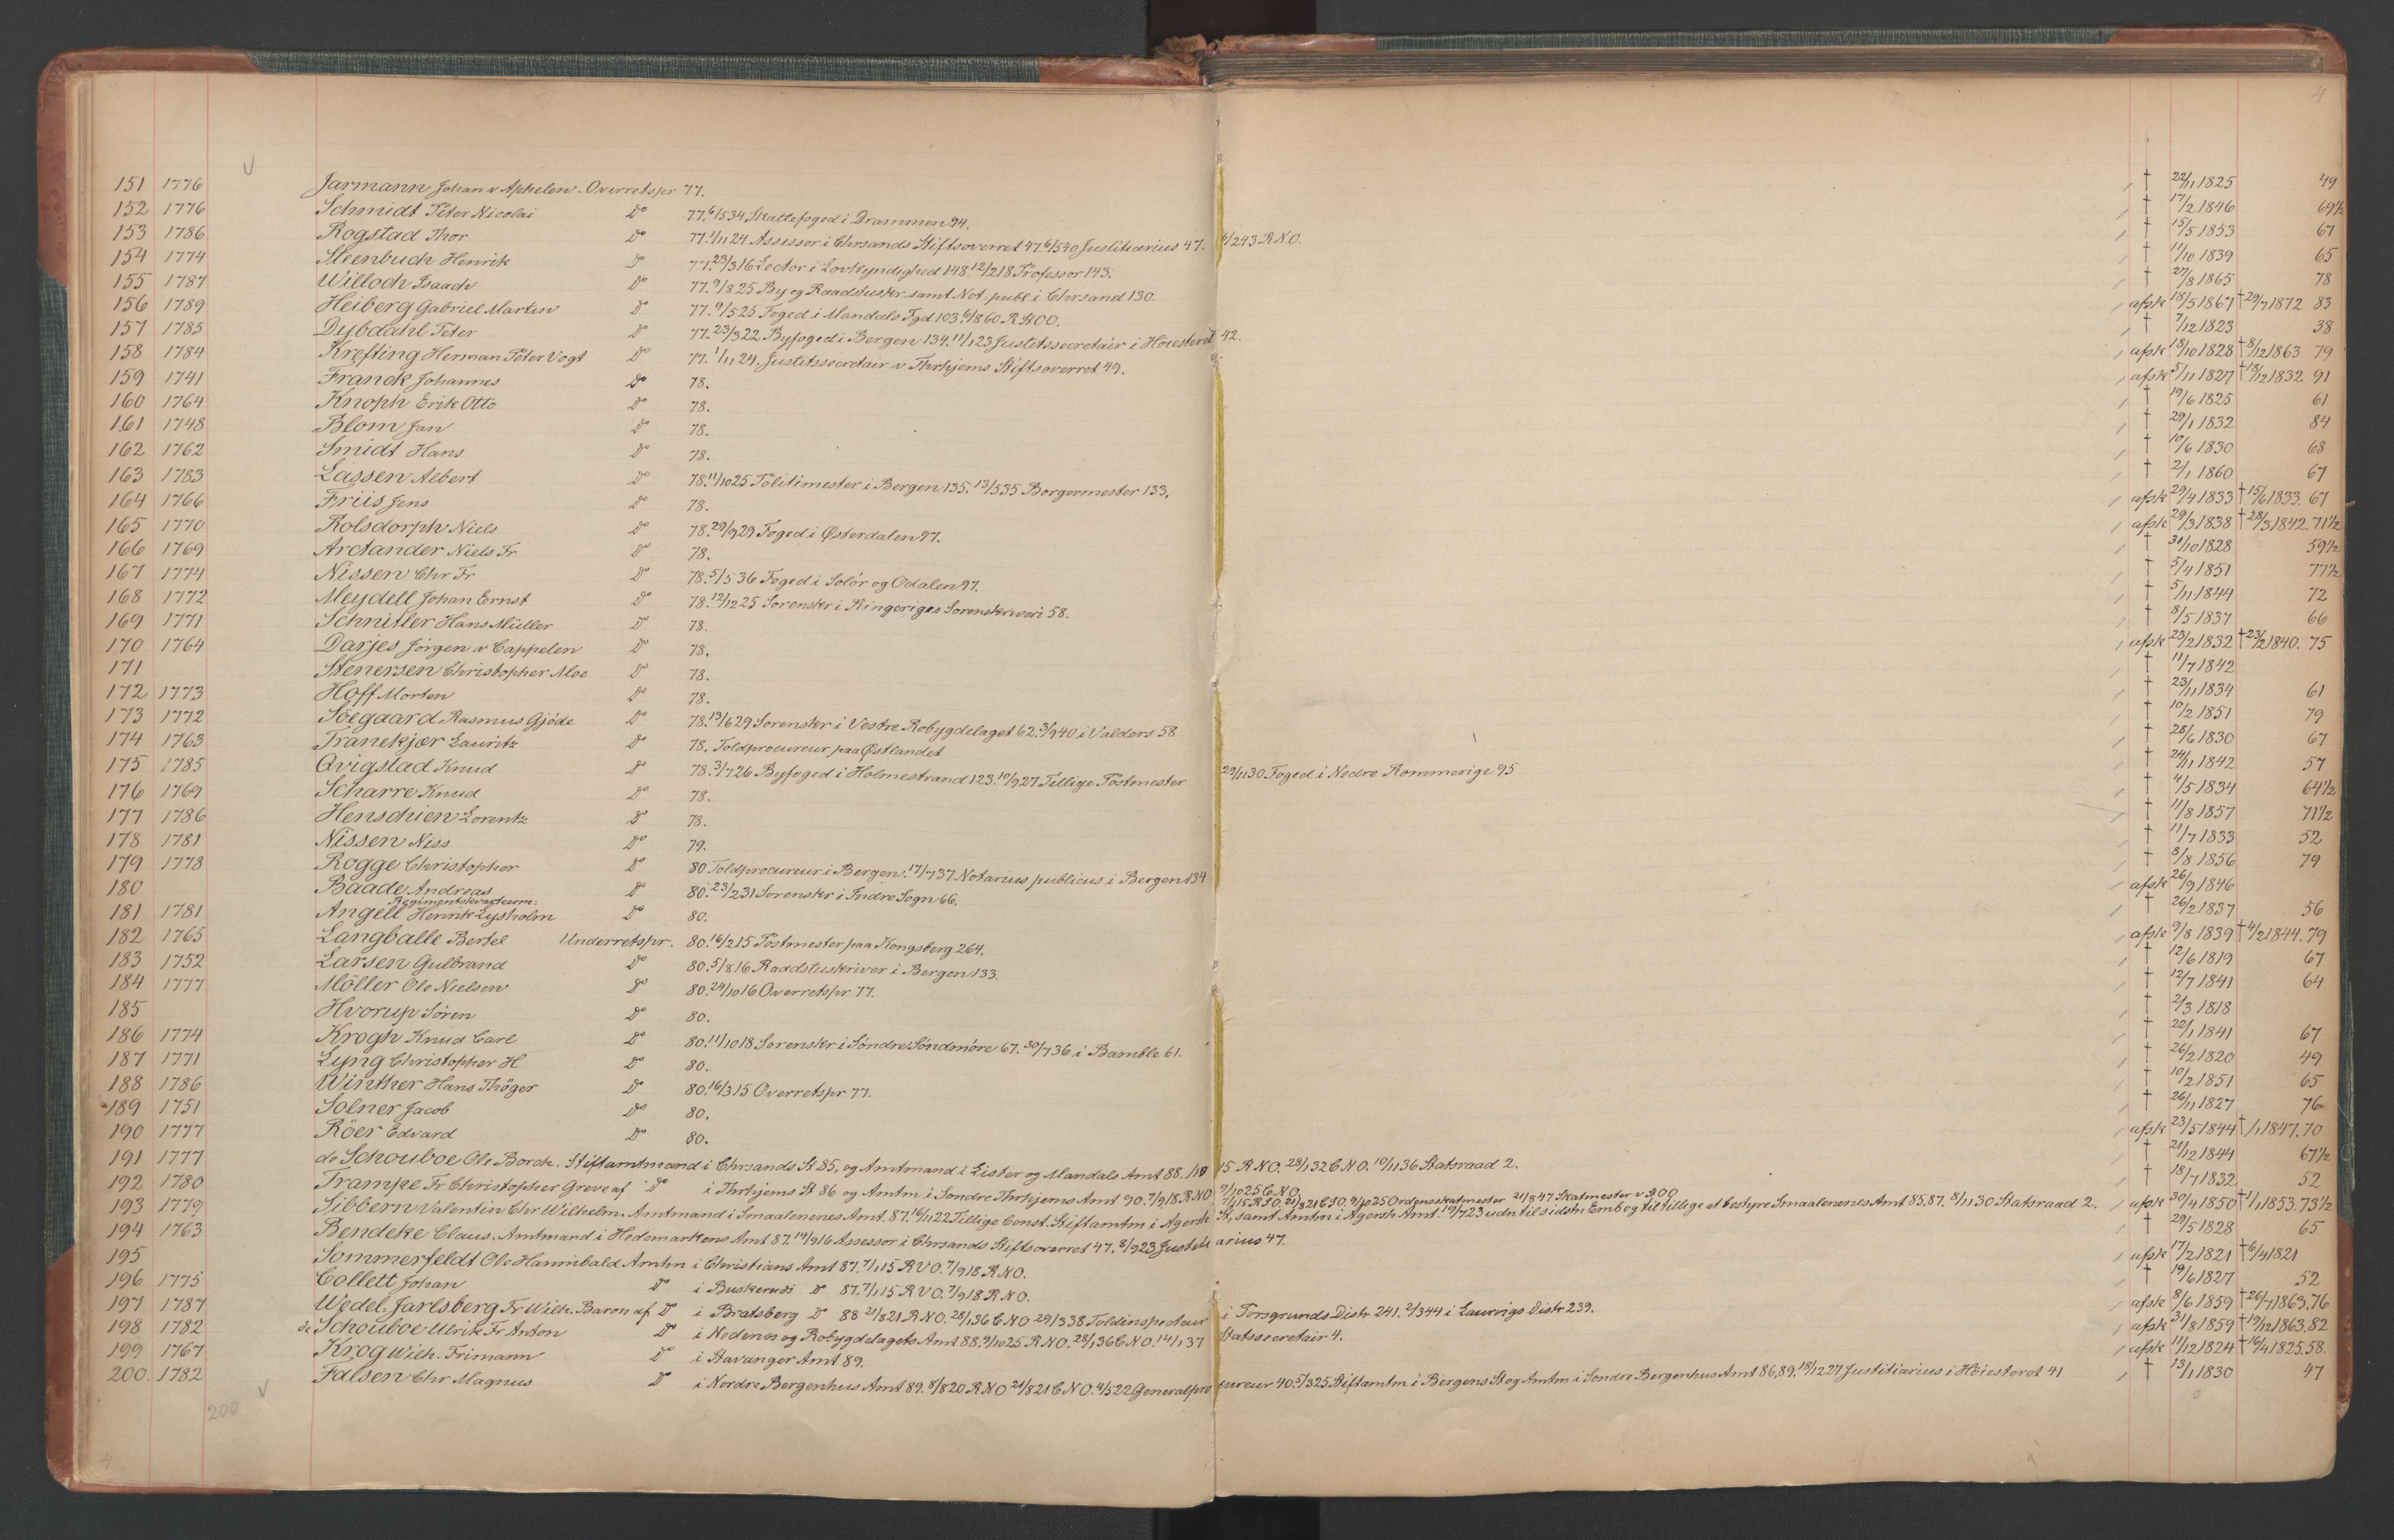 4
151 1776 Jarmann Johan v Aphelen. Overretspr 77. † 22/11 1825 49
152 1776 Schmidt Peter Nicolai Do 77. 6/5 34 Skattefoged i Drammen 94. † 17/2 1846 69½
153 1786 Rogstad Thor Do 77. 1/11 24 Assessor i Chrsands Stiftsoverret 47. 6/5 40 Justitiarius 47. 6/2 43 RNO. † 15/5 1853 67
154 1774 Steenbuch Henrik Do 77. 23/3 16 Lector i Lovkyndighed 148. 12/2 18 Professor 143. † 11/10 1839 65
155 1787 Willoch Isaach Do 77. 9/8 25 By og Raadstuskr. samt Not. publ i Chrsand 130. † 27/8 1865 78
156 1789 Heiberg Gabriel Martin Do 77. 9/5 25 Foged i Mandals Fgd 103. 6/8 60 RStOO. afsk 18/5 1867 † 29/7 1872 83
157 1785 Dybdahl Peter Do 77. 23/3 22 Byfoged i Bergen 134. 11/1 23 Justitssecretair i Höiesteret 42. † 7/12 1823 38
158 1784 Krefting Herman Peter Vogt Do 77. 1/11 24. Justitssecretair v Thrhjems Stiftsoverret 49. afsk 18/10 1828 † 8/12 1863 79
159 1741 Franck Johannes Do 78. afsk 5/11 1827 † 18/12 1832 91
160 1764 Knoph Erik Otto Do 78. † 19/6 1825 61
161 1748 Blom Jan Do 78. † 29/1 1832 84
162 1762 Smidt Hans Do 78. † 10/6 1830 68
163 1783 Lassen Albert Do 78. 11/10 25 Politimester i Bergen 135. 13/5 35 Borgermester 133. † 2/1 1860 67
164 1766 Friis Jens Do 78. afsk 29/4 1833 † 15/6 1833. 67
165 1770 Rolsdorph Niels Do 78. 29/9 29 Foged i Østerdalen 97. afsk 29/3 1838 † 28/3 1842. 71½
166 1769 Arctander Niels Fr Do 78. † 31/10 1828 59½
167 1774 Nissen Chr Fr Do 78. 5/5 36 Foged i Solør og Odalen 97. † 5/4 1851 77½
168 1772 Meydell Johan Ernst Do 78. 12/12 25 Sorenskr i Ringeriges Sorenskriveri 58. † 5/11 1844 72
169 1771 Schnitler Hans Müller Do 78. † 8/5 1837 66
170 1764 Darjes Jörgen v Cappelen Do 78. afsk 23/2 1832 † 23/2 1840. 75
171 Stenersen Christopher Moe Do 78. † 11/7 1842
172 1773 Hoff Morten Do 78. † 23/11 1834 61
173 1772 Söegaard Rasmus Gjöde Do 78. 13/6 29 Sorenskr i Vestre Robygdelaget 62. 3/9 40 i Valders 58 † 10/2 1851 79
174 1763 Tranekjær Lauritz Do 78. Toldprocureur paa Østlandet † 28/6 1830 67
175 1785 Qvigstad Knud Do 78. 3/7 26 Byfoged i Holmestrand 123. 10/9 27 Tillige Postmester 29/11 30 Foged i Nedre Rommerige 95 † 24/11 1842 57
176 1769 Scharre Knud Do 78. † 4/5 1834 64½
177 1786 Henschien Lorentz Do 78. † 11/8 1857 71½
178 1781 Nissen Niss Do 79. † 11/7 1833 52
179 1778 Rogge Christopher Do 80. Toldprocureur i Bergen. 17/7 37 Notarius publicus i Bergen 134 † 8/8 1856 79
180 Baade Andreas Do 80. 23/2 31 Sorenskr i Indre Sogn 66. afsk 26/9 1846
Regimentskvarterm:
181 1781 Angell Henrik Lysholm Do 80. † 26/2 1837 56
182 1765 Langballe Bertel Underretspr. 80. 16/2 15 Postmester paa Kongsberg 264. afsk 9/8 1839 † 4/2 1844. 79
183 1752 Larsen Gulbrand Do 80. 5/8 16 Raadstuskriver i Bergen 133. † 12/6 1819 67
184 1777 Möller Ole Nielsen Do 80. 24/10 16 Overretspr 77. † 12/7 1841 64
185 Hvorup Sören Do 80. † 2/3 1818
186 1774 Krogh Knud Carl Do 80. 11/10 18 Sorenskr i Söndre Söndmöre 67. 30/7 36 i Bamble 61. † 22/1 1841 67
187 1771 Lyng Christopher H Do 80. † 26/2 1820 49
188 1786 Winther Hans Thöger Do 80. 16/3 15 Overretspr 77. † 10/2 1851 65
189 1751 Solner Jacob Do 80. † 26/11 1827 76
190 1777 Röer Edvard Do 80. afsk 23/5 1844 † /1 1847. 70
191 1777 de Schouboe Ole Borch. Stiftamtmand i Chrsands St 85, og Amtmand i Lister og Mandals Amt 88. /10 15 RNO. 28/1 32 CNO. 10/11 36 Statsraad 2. † 21/12 1844 67½
192 1780 Trampe Fr Christopher Greve af Do i Thrhjems St 86 og Amtm i Sondre Thrhjems Amt 90. 7/9 18 RNO 9/10 25 CNO. † 18/7 1832 52
7/1 15 RSO. 21/8 21 CSO. 9/10 25 Ordensskatmester 21/8 47 Skatmester v StOO
193 1779 Sibbern Valentin Chr Wilhelm. Amtmand i Smaalenenes Amt. 87. 16/11 22 Tillige Const. Stiftamtm i Agersh St, samt Amtm i Agersh Amt. 19/7 23 udn til sidstn Emb og til tillige at bestyre Smaalenenes Amt 85, 87. 8/11 30 Statsraad 2. afsk 30/4 1850 † 1/1 1853. 73½
194 1763 Bendeke Claus. Amtmand i Hedemarkens Amt 87. 14/9 16 Assessor i Chrsands Stiftsoverret 47. 8/9 23 Justitiarius 47. † 29/5 1828 65
195 Sommerfeldt Ole Hannibald Amtm i Christians Amt 87. 7/1 15 RVO. 7/9 18 RNO. afsk 17/2 1821 † 6/4 1821
196 1775 Collett Johan Do i Buskeruds Do 87. 7/1 15 RVO. 7/9 18 RNO. † 19/6 1827 52
197 1787 Wedel Jarlsberg Fr Wilh. Baron af Do i Bratsberg Do 88 21/8 21 RNO. 28/1 36 CNO 29/3 38 Toldinspecteur i Porsgrunds Distr 241. 2/3 44 i Laurvigs Distr 239. afsk 8/6 1859 † 26/7 1863. 76
198 1782 de Schouboe Ulrik Fr Anton Do i Nedenæs og Robygdelagets Amt 88. 9/10 25 RNO. 28/1 36 CNO. 14/1 37 Statssecretair 4. afsk 31/8 1859 † 19/12 1863. 82
199 1767 Krog Wilh. Frimann Do i Stavanger Amt 89. afsk 11/12 1824 † 16/4 1825. 58.
200. 1782 Falsen Chr Magnus Do i Nordre Bergenhus Amt 89. 8/8 20 RNO 21/8 21 CNO. 4/5 22 Generalprocureur 40. 5/3 25 Stiftamtm i Bergens St og Amtm i Sondre Bergenhus Amt 86, 89. 18/12 27 Justitiarius i Höiesteret 41 † 13/1 1830 47
200
4